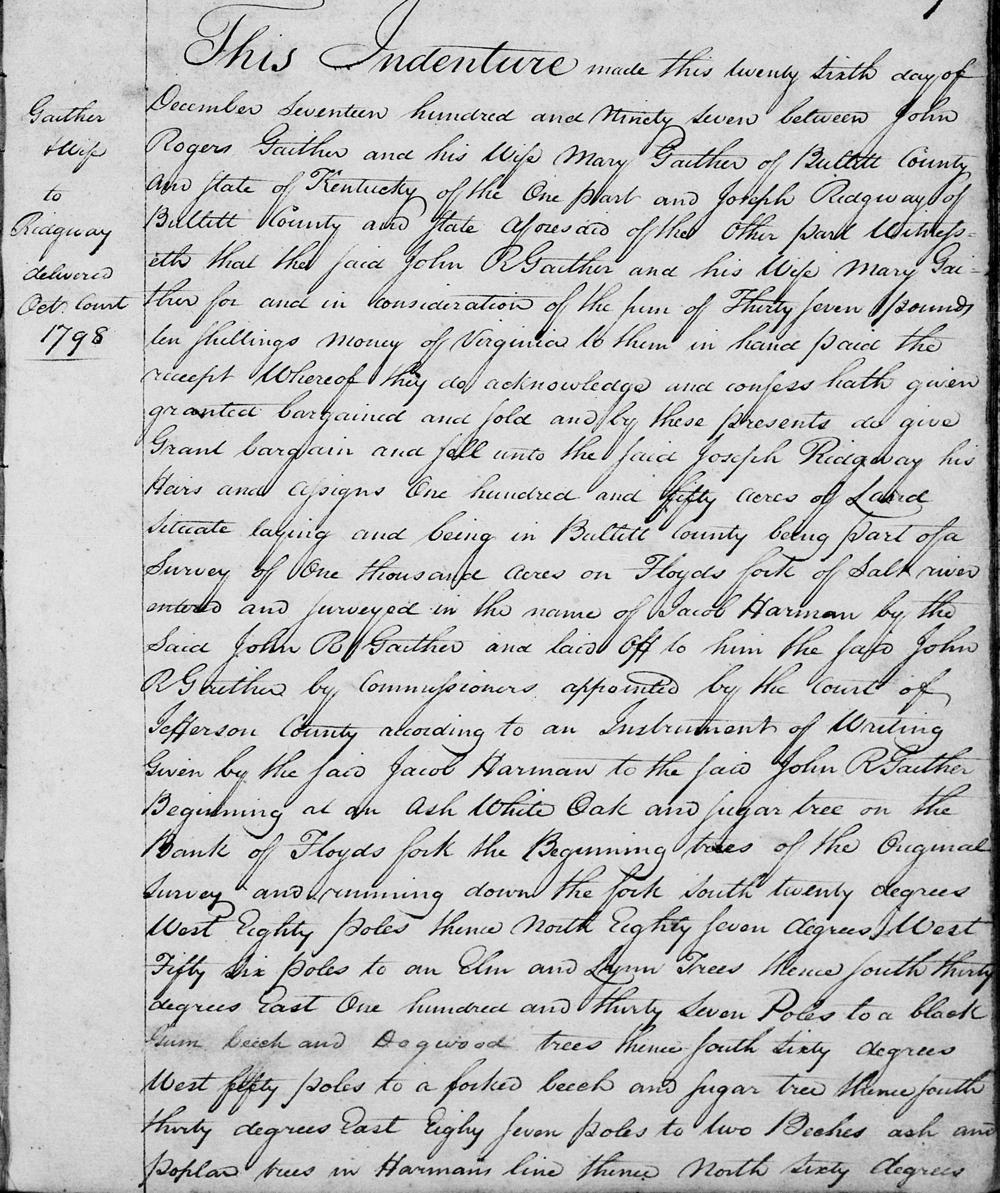 This Indenture made this twenty sixth day of
December Seventeen hundred and Ninety Seven between John
Rogers Gaither and his Wife Mary Gaither of Bullitt County
and State of Kentucky of the One part and Joseph Ridgway of
Bullitt County and State aforesaid of the Other part Witness=
eth that the said John R Gaither and his Wife Mary Gai=
ther for and in consideration of the sum of Thirty seven pounds
ten shillings money of Virginia to them in hand paid the
receipt Whereof they do acknowledge and confess hath given
granted bargained and sold and by these presents do give
Grant bargain and sell unto the said Joseph Ridgway his
Heirs and assigns One hundred and fifty acres of Land
Situate laying and being in Bullitt County being part of a
Survey of One thousand acres on Floyds fork of Salt river
entered and surveyed in the name of Jacob Harman by the
Said John R Gaither and laid off to him the said John
R Gaither by Commissioners appointed by the Court of
Jefferson County acording to an Instrument of Writing
Given by the said Jacob Harman to the said John R Gaither
Beginning at an Ash White Oak and sugar tree on the
Bank of Floyds fork the Beginning trees of the Original
Survey and running down the fork South twenty degrees
West Eighty poles thence North Eighty seven degrees West
Fifty six poles to an Elm and Lynn Trees thence South thirty
degrees East One hundred and thirty Seven Poles to a black
Gum beech and Dogwood trees thence South sixty degrees
West fifty poles to a forked beech and sugar tree thence South
thirty degrees East Eighy seven poles to two Beches ash and
poplar trees in Harmans line thence North sixty degrees
Gaither
& Wife
to
Ridgway
delivered
Oct. Court
1798